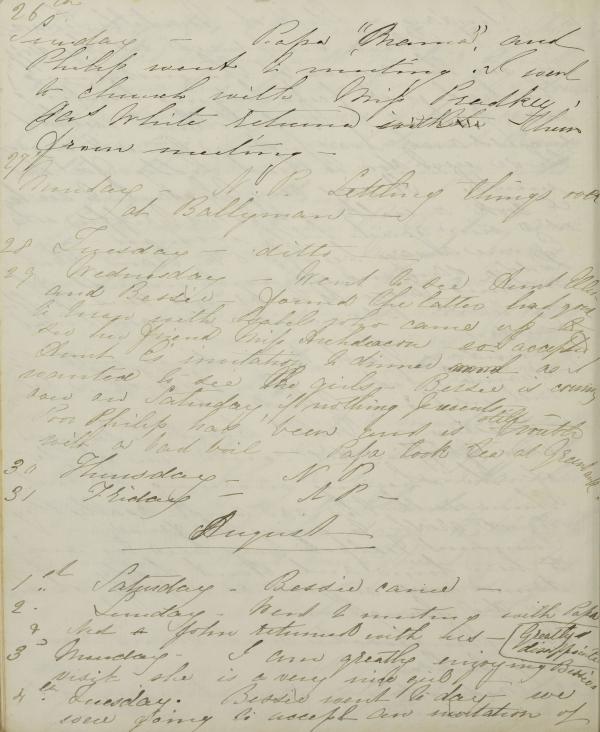 26th
Sunday - Papa "Mama" and
Philip went to meeting. I went
to church with Miss
White returned them
from meeting -
27th
Monday - N. P. Settling things over
at Ballyman -
28 Tuesday - ditto -
29 Wednesday - Went to see Aunt
and Bessie - found the latter had gone
to town with Isabel came up to
see her friend Miss Archdeacon so I accepted
Aunt E's invitation to dinner and as I
wanted to see the girls. Bessie is coming
over on Saturday if nothing prevents
Poor Philip has been and is
with a bad boil - Papa took tea at
30 Thursday - N P
31 Friday - N P -
August
1st Saturday - Bessie came -
2. Sunday - Went to meeting with Papa
& John returned with us - (Greatly
disappointed
3d Monday - I am greatly enjoying Bessie's
visit she is a very nice girl
4th Tuesday. Bessie went to day we
were going to accept an invitation of